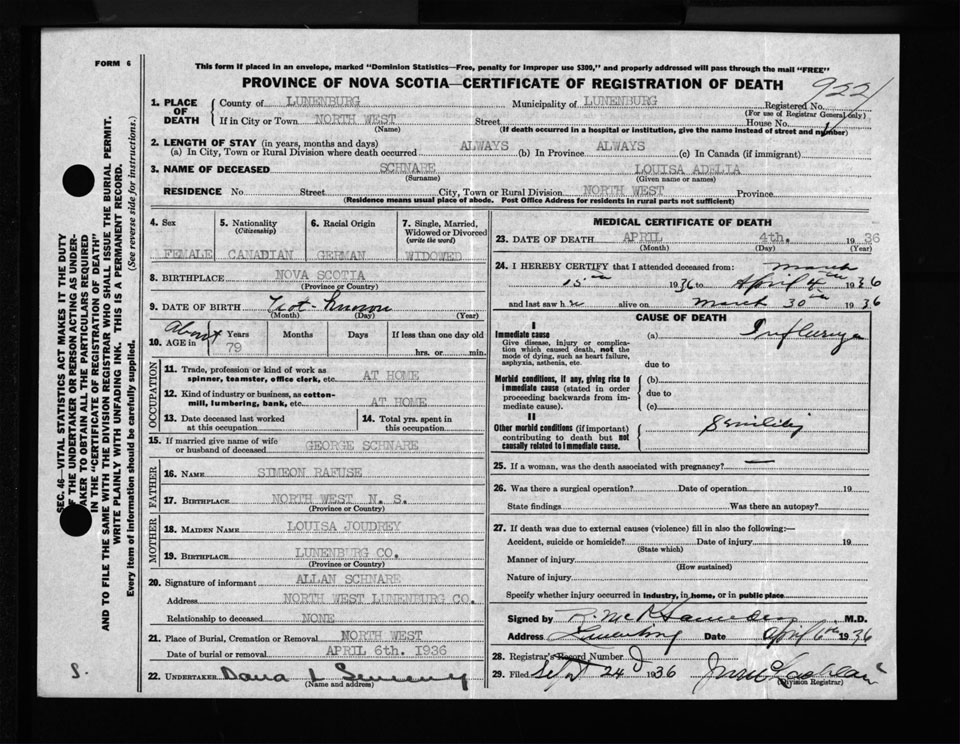 FORM 6
This form if placed in an envelope, marked "Dominion Statistics—Free, penalty for improper use $300," and properly addressed will pass through the mail "FREE"
PROVINCE OF NOVA SCOTIA—CERTIFICATE OF REGISTRATION OF DEATH
1. PLACE OF DEATH County of LUNENBURG Municipality of LUNENBURG Registered No.
(For use of Registrar General only)
If in City or Town NORTH WEST Street House No.
(Name) (If death occurred in a hospital or institution, give the name instead of street and number)
2. LENGTH OF STAY (in years, months and days)
(a) In City, Town or Rural Division where death occurred ALWAYS (b) In Province ALWAYS (c) In Canada (if immigrant)
3. NAME OF DECEASED SCHNARE LOUISA ADELIA
(Surname) (Given name or names)
RESIDENCE No. Street City, Town or Rural Division NORTH WEST Province
(Residence means usual place of abode. Post Office Address for residents in rural parts not sufficient)
4. Sex 5. Nationality 6. Racial Origin 7. Single, Married,
(Citizenship) Widowed or Divorced
(write the word)
FEMALE CANADIAN GERMAN WIDOWED
8. BIRTHPLACE NOVA SCOTIA
(Province or Country)
9. DATE OF BIRTH Not-Known
(Month) (Day) (Year)
About
10. AGE in Years Months Days If less than one day old
79 hrs. or min.
OCCUPATION
11. Trade, profession or kind of work as
spinner, teamster, office clerk, etc. AT HOME
12. Kind of industry or business, as cotton-
mill, lumbering, bank, etc. AT HOME
13. Date deceased last worked 14. Total yrs. spent in
at this occupation this occupation
15. If married give name of wife
or husband of deceased GEORGE SCHNARE
FATHER
16. NAME SIMEON RAFUSE
17. BIRTHPLACE NORTH WEST N. S.
(Province or Country)
MOTHER
18. MAIDEN NAME LOUISA JOUDREY
19. BIRTHPLACE LUNENBURG CO.
(Province or Country)
20. Signature of informant ALLAN SCHNARE
Address NORTH WEST LUNENBURG CO.
Relationship to deceased NONE
21. Place of Burial, Cremation or Removal NORTH WEST
Date of burial or removal APRIL 6th. 1936
22. UNDERTAKER
(Name and address)
MEDICAL CERTIFICATE OF DEATH
23. DATE OF DEATH APRIL 4th. 1936
(Month) (Day) (Year)
24. I HEREBY CERTIFY that I attended deceased from: March
15th 1936 to April 4th 1936
and last saw h er alive on March 30th 1936
CAUSE OF DEATH
I
Immediate cause (a) Influenza
Give disease, injury or complica-
tion which caused death, not the
mode of dying, such as heart failure,
asphyxia, asthenia, etc. due to
Morbid conditions, if any, giving rise to (b)
immediate cause (stated in order due to
proceeding backwards from im-
mediate cause). (c)
II
Other morbid conditions (if important) Senility
contributing to death but not
causally related to immediate cause.
25. If a woman, was the death associated with pregnancy? —
26. Was there a surgical operation? Date of operation 19
State findings Was there an autopsy?
27. If death was due to external causes (violence) fill in also the following:—
Accident, suicide or homicide? Date of injury 19
(State which)
Manner of injury
(How sustained)
Nature of injury
Specify whether injury occurred in industry, in home, or in public place
Signed by M.D.
Address Lunenburg Date April 6th 1936
28. Registrar's Record Number
29. Filed Sept 24 1936
(Division Registrar)
SEC. 46—VITAL STATISTICS ACT MAKES IT THE DUTY
OF THE UNDERTAKER OR PERSON ACTING AS UNDER-
TAKER TO OBTAIN ALL THE PARTICULARS REQUIRED
IN THE "CERTIFICATE OF REGISTRATION OF DEATH"
AND TO FILE THE SAME WITH THE DIVISION REGISTRAR WHO SHALL ISSUE THE BURIAL PERMIT.
WRITE PLAINLY WITH UNFADING INK. THIS IS A PERMANENT RECORD.
Every item of information should be carefully supplied. (See reverse side for instructions.)
S.